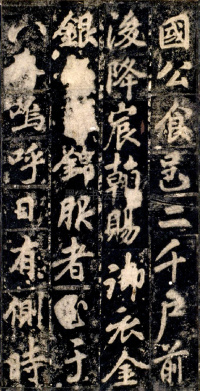 國公食邑二千戶前
後降宸翰賜御衣金
銀錦服者于
八嗚呼日有側時